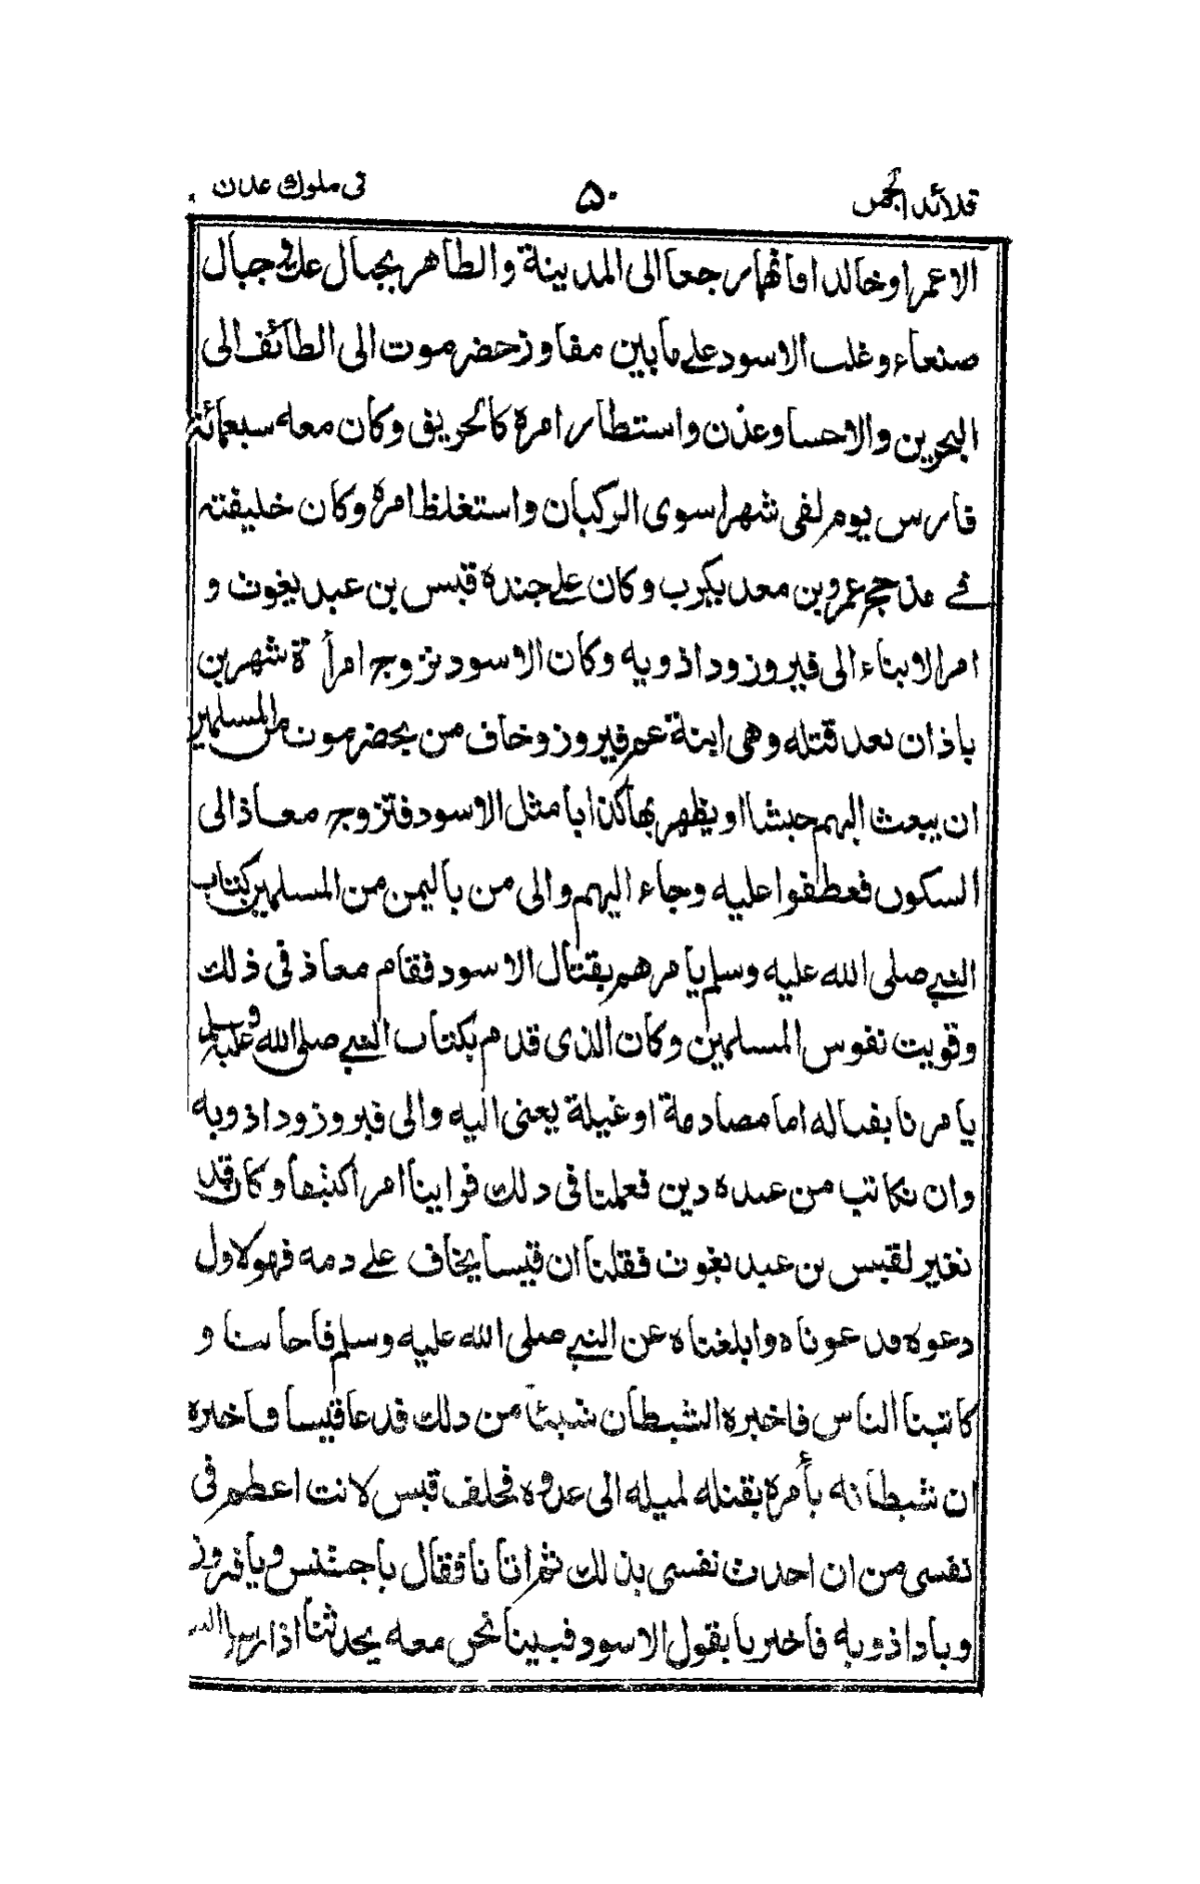 قلائد الجمن ۵۰ فى ملوك عدن
الا عمرا وخالدا فانهما رجعا الى المدينة والطاهر بجبال عك وفى جبال
صنعاء وغلب الاسود على ما بين مفاوز حضرموت الى الطائف الى
البحرين والاحسا وعدن واستطار امره كالحريق وكان معه سبعمائة
فارس يوم لقى شهرا سوى الركبان واستغلظ امره وكان خليفته
فى مذحج عمرو بن معديكرب وكان على جنده قيس بن عبد يغوث و
امر الابناء الى فيروز وداذويه وكان الاسود تزوج امرأة شهر بن
باذان بعد قتله وهى ابنة عم فيروز وخاف من بحضرموت من المسلمين
ان يبعث اليهم جيشا او يظهر بها كذابا مثل الاسود فتزوج معاذ الى
السكون فعطفوا عليه وجاء اليهم والى من باليمن من المسلمين كتاب
النبى صلى الله عليه وسلم يامرهم بقتال الاسود فقام معاذ فى ذلك
وقويت نفوس المسلمين وكان الذى قدم بكتاب النبى صلى الله عليه وسلم
يامرنا بقتاله اما مصادمة او غيلة يعنى اليه والى فيروز وداذويه
وان نكاتب من عنده دين فعملنا فى ذلك فراينا امرا كثيفا وكان قد
تغير لقيس بن عبد يغوث فقلنا ان قيسا يخاف على دمه فهو لاول
دعوه فدعوناه وابلغناه عن النبى صلى الله عليه وسلم فاجابنا و
كاتبنا الناس فاخبره الشيطان شيئا من ذلك فدعا قيسا فاخبره
ان شيطانه يأمره بقتله لميله الى عدوه فحلف قيس لانت اعظم فى
نفسى من ان احدث نفسى بذلك ثم اتانا فقال يا جشنس ويا فيروز
ويا داذويه فاخبرنا بقول الاسود فبينا نحن معه يحدثنا اذ ارسل الينا